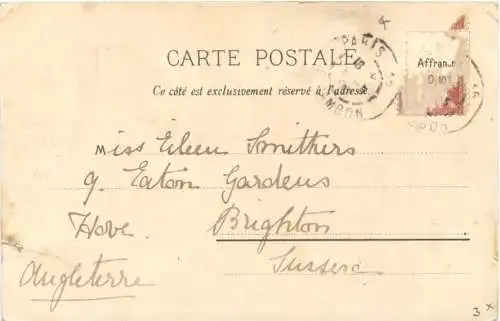 CARTE POSTALE
Ce côté est exclusivement réservé à l'adresse.
PARIS
Affran
0,10
Miss Eileen Smithers
9. Eaton Gardens
Hove. Brighton
Sussex
Angleterre
3 x